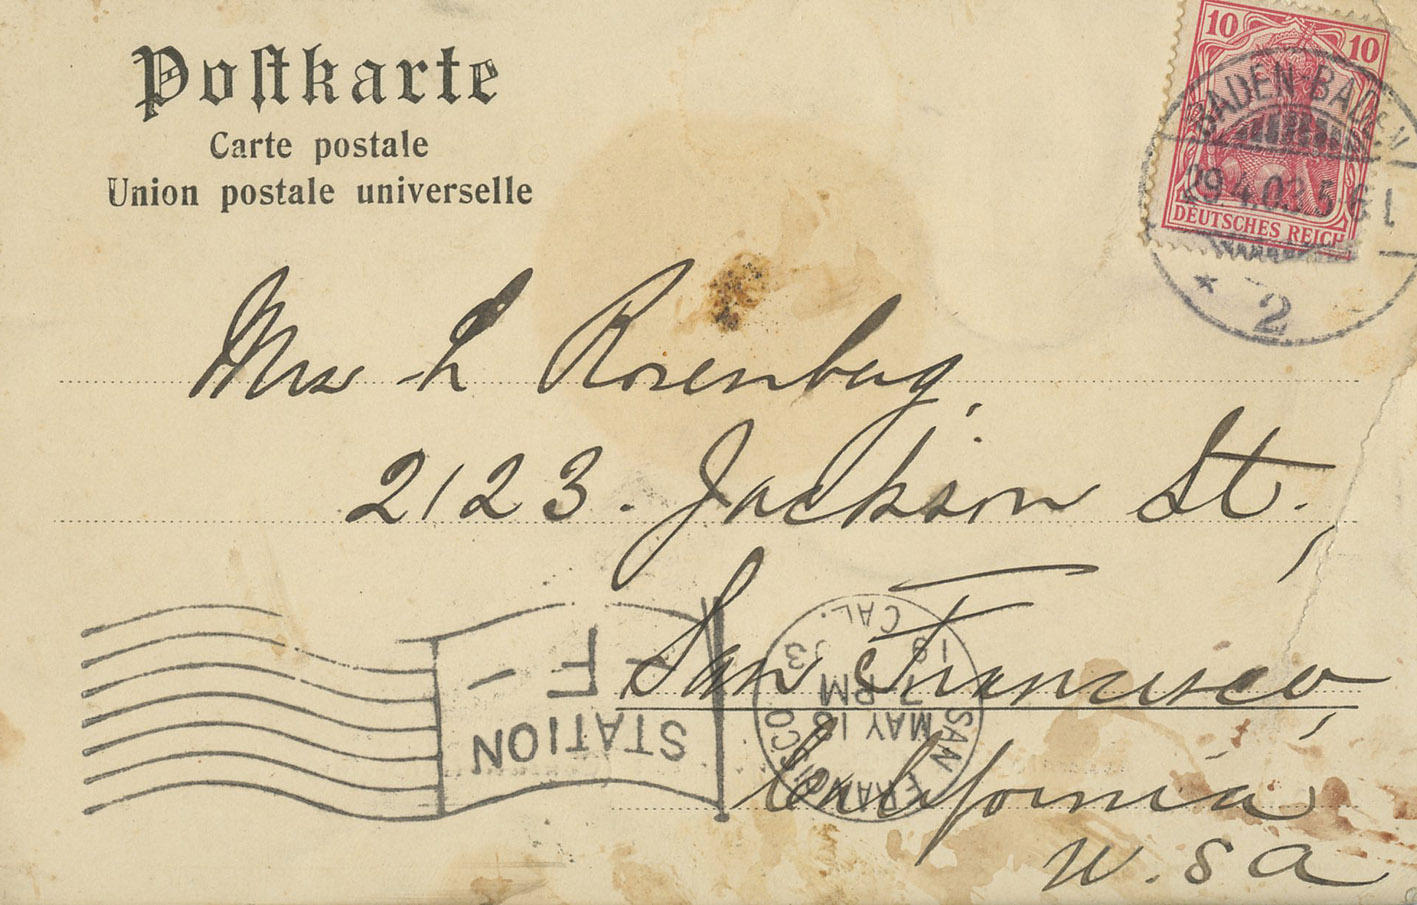 Postkarte
Carte postale
Union postale universelle
10 10
BADEN-BADEN
29.4.03.5-6
DEUTSCHES REICH
* 2
Mrs L Rosenberg,
2123. Jackson St.,
San Francisco,
California
U.S.A
STATION
F
SAN FRANCISCO CAL.
MAY 16
7 PM
1903